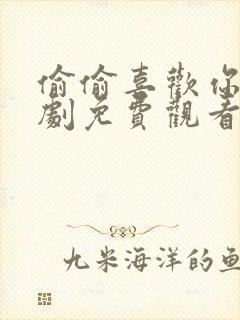 偷偷喜歡你
劇免費觀看
九米海洋的魚